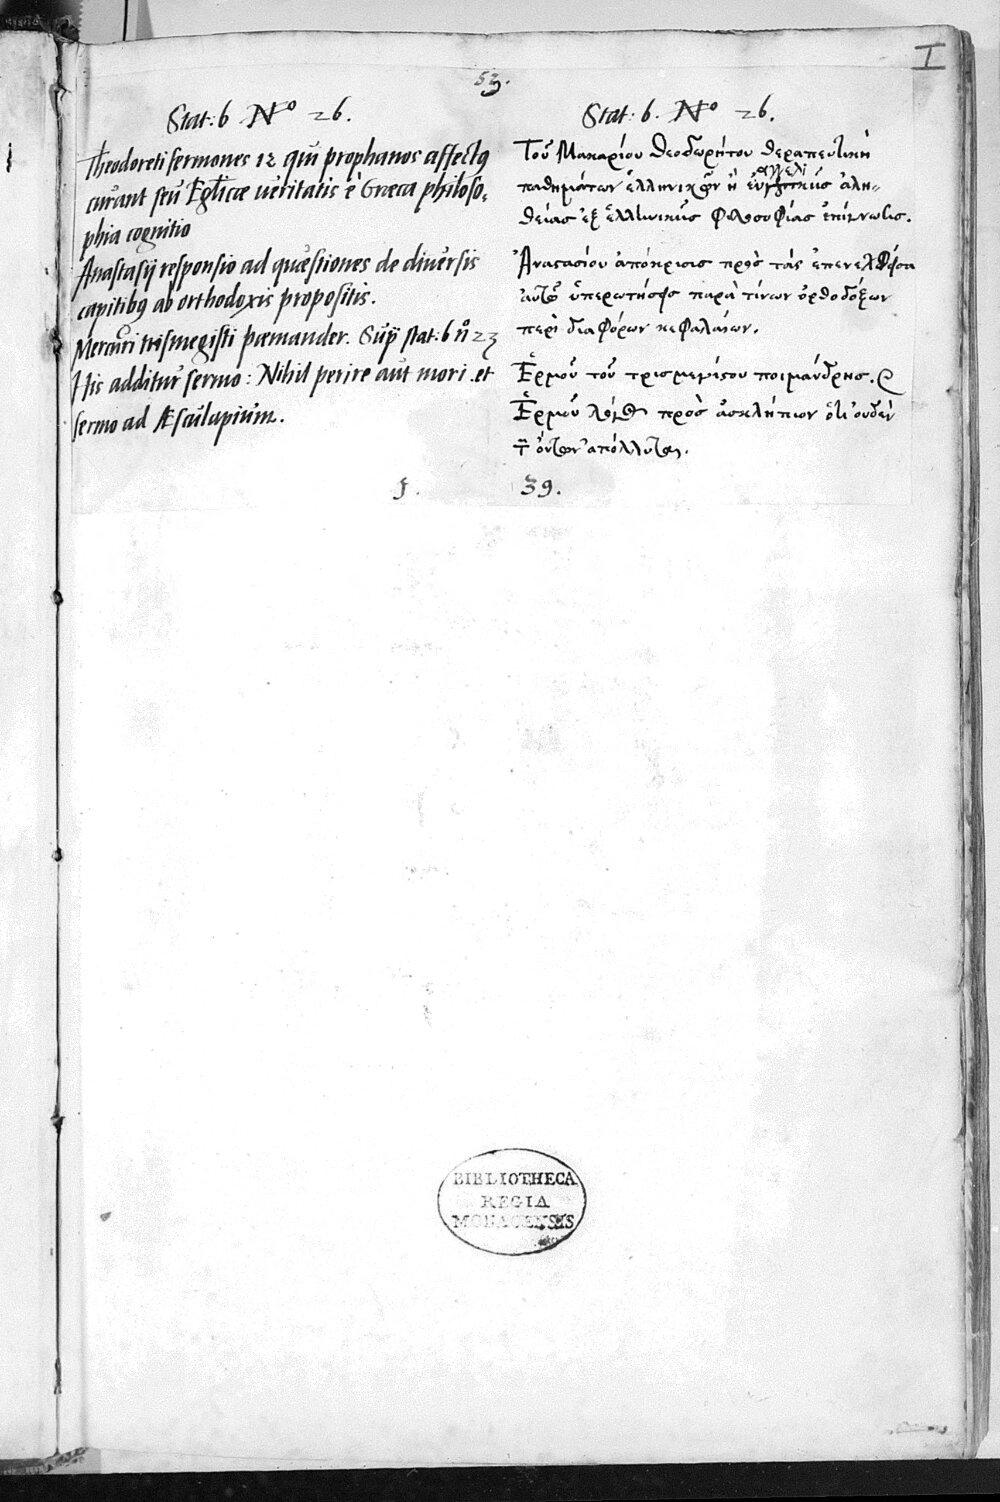 I
53.
Stat: 6 Nº 26.
Theodoreti sermones 12 qui prophanos affectꝰ
curant seu Eglicæ veritatis è Græca philoso„
phia cognitio
Anastasij responsio ad quæstiones de diversis
capitibꝰ ab orthodoxis propositis.
Mercuri trismegisti pœmander. Sup̃ stat: 6 nº 23
His additur sermo: Nihil perire aut mori. et
sermo ad Æsculapium.
1.
Stat: 6. Nº 26.
Τοῦ Μακαρίου θεοδωρήτου θεραπευτικὴ
αγγελι
παθημάτων ἑλληνικῶν ἢ ἀλη„
θείας ἐξ ἑλληνικῆς φιλοσοφίας ἐπίγνωσις.
Ἀναστασίου ἀπόκρισις πρὸς τὰς ἐπενεχθείσα
αὐτῷ ὑπερωτήσεις παρὰ τίνων ὀρθοδόξων
περὶ διαφόρων κεφαλαίων.
Ἑρμοῦ τοῦ τρισμεγίστου ποιμάνδρης.
Ἑρμοῦ λόγος πρὸς ἀσκλήπιον ὅτι οὐδὲν
τῶν ὄντων ἀπόλλυται.
39.
BIBLIOTHECA
REGIA
MONACENSIS